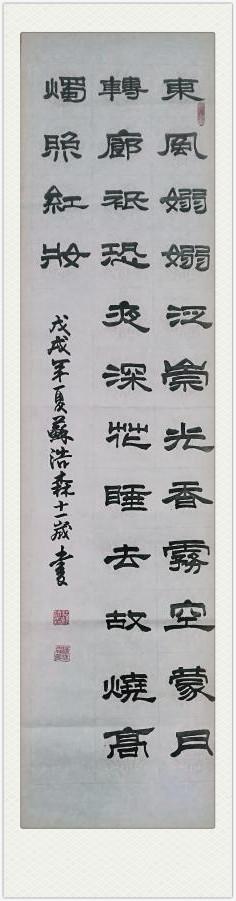 東風嫋嫋泛崇光香霧空蒙月
轉廊祇恐夜深花睡去故燒高
燭照紅妝
戊戌年夏蘇浩森十二歲書